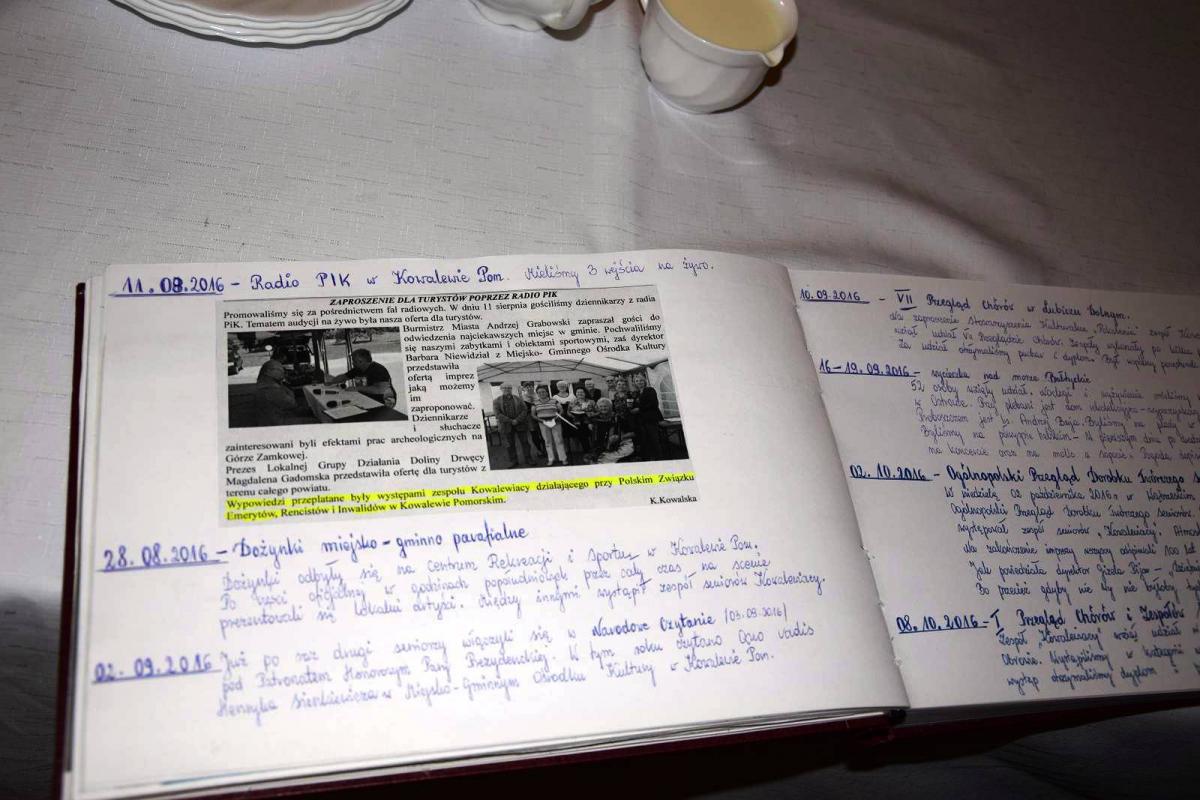 11.08.2016 - Radio PIK w Kowalewie Pom. Mieliśmy 3 wejścia na żywo.
ZAPROSZENIE DLA TURYSTÓW POPRZEZ RADIO PIK
Promowaliśmy się za pośrednictwem fal radiowych. W dniu 11 sierpnia gościliśmy dziennikarzy z radia
PiK. Tematem audycji na żywo była nasza oferta dla turystów.
Burmistrz Miasta Andrzej Grabowski zapraszał gości do
odwiedzenia najciekawszych miejsc w gminie. Pochwaliliśmy
się naszymi zabytkami i obiektami sportowymi, zaś dyrektor
Barbara Niewidział z Miejsko- Gminnego Ośrodka Kultury
przedstawiła
ofertą imprez
jaką możemy
im
zaproponować.
Dziennikarze
i słuchacze
zainteresowani byli efektami prac archeologicznych na
Górze Zamkowej.
Prezes Lokalnej Grupy Działania Doliny Drwęcy
Magdalena Gadomska przedstawiła ofertę dla turystów z
terenu całego powiatu.
Wypowiedzi przeplatane były występami zespołu Kowalewiacy działającego przy Polskim Związku
Emerytów, Rencistów i Inwalidów w Kowalewie Pomorskim.
K.Kowalska
28.08.2016 - Dożynki miejsko-gminno parafialne
Dożynki odbyły się na Centrum Rekreacji i Sportu w Kowalewie Pom.
Po części oficjalnej w godzinach popołudniowych przez cały czas na scenie
prezentowali się lokalni artyści. Między innymi wystąpił zespół seniorów Kowalewiacy.
02.09.2016 Już po raz drugi seniorzy włączyli się w Narodowe Czytanie /03.09.2016/
pod Patronatem Honorowym Pary Prezydenckiej. W tym roku czytano Quo vadis
Henryka Sienkiewicza w Miejsko-Gminnym Ośrodku Kultury w Kowalewie Pom.
10.09.2016 - VII Przegląd Chórów w Lubiczu Dolnym.
na zaproszenie Stowarzyszenia zespół
wziął udział VII Przeglądzie Chórów. Zespoły wykonały po kilka
Za udział otrzymaliśmy puchar i dyplom. Był wspólny
16-19.09.2016 - wycieczka nad morze Bałtyckie
52 osoby wzięły udział. Noclegi i wyżywienie mieliśmy
w Ostrowie. Przy plebani jest dom
Proboszczem jest ks. Andrzej Byliśmy na plaży w
Byliśmy na półwyspie helskim. W pierwszym dniu po
na koncercie oraz na molo a
02.10.2016 - Ogólnopolski Przegląd Dorobku Twórczego
W niedzielę 02 października 2016 r. w Wąbrzeskim
Ogólnopolski Przegląd Dorobku Twórczego seniorów.
występował zespół seniorów "Kowalewiacy".
na zakończenie imprezy wszyscy odśpiewali 100 lat
Jak powiedziała dyrektor Gizela Pijar -
Bo przecież gdyby nie Wy nie byłoby
08.10.2016 - I Przegląd Chórów i Zespołów
Zespół "Kowalewiacy" wziął udział w
Obronie. Wystąpiliśmy w kategorii
występ otrzymaliśmy dyplom